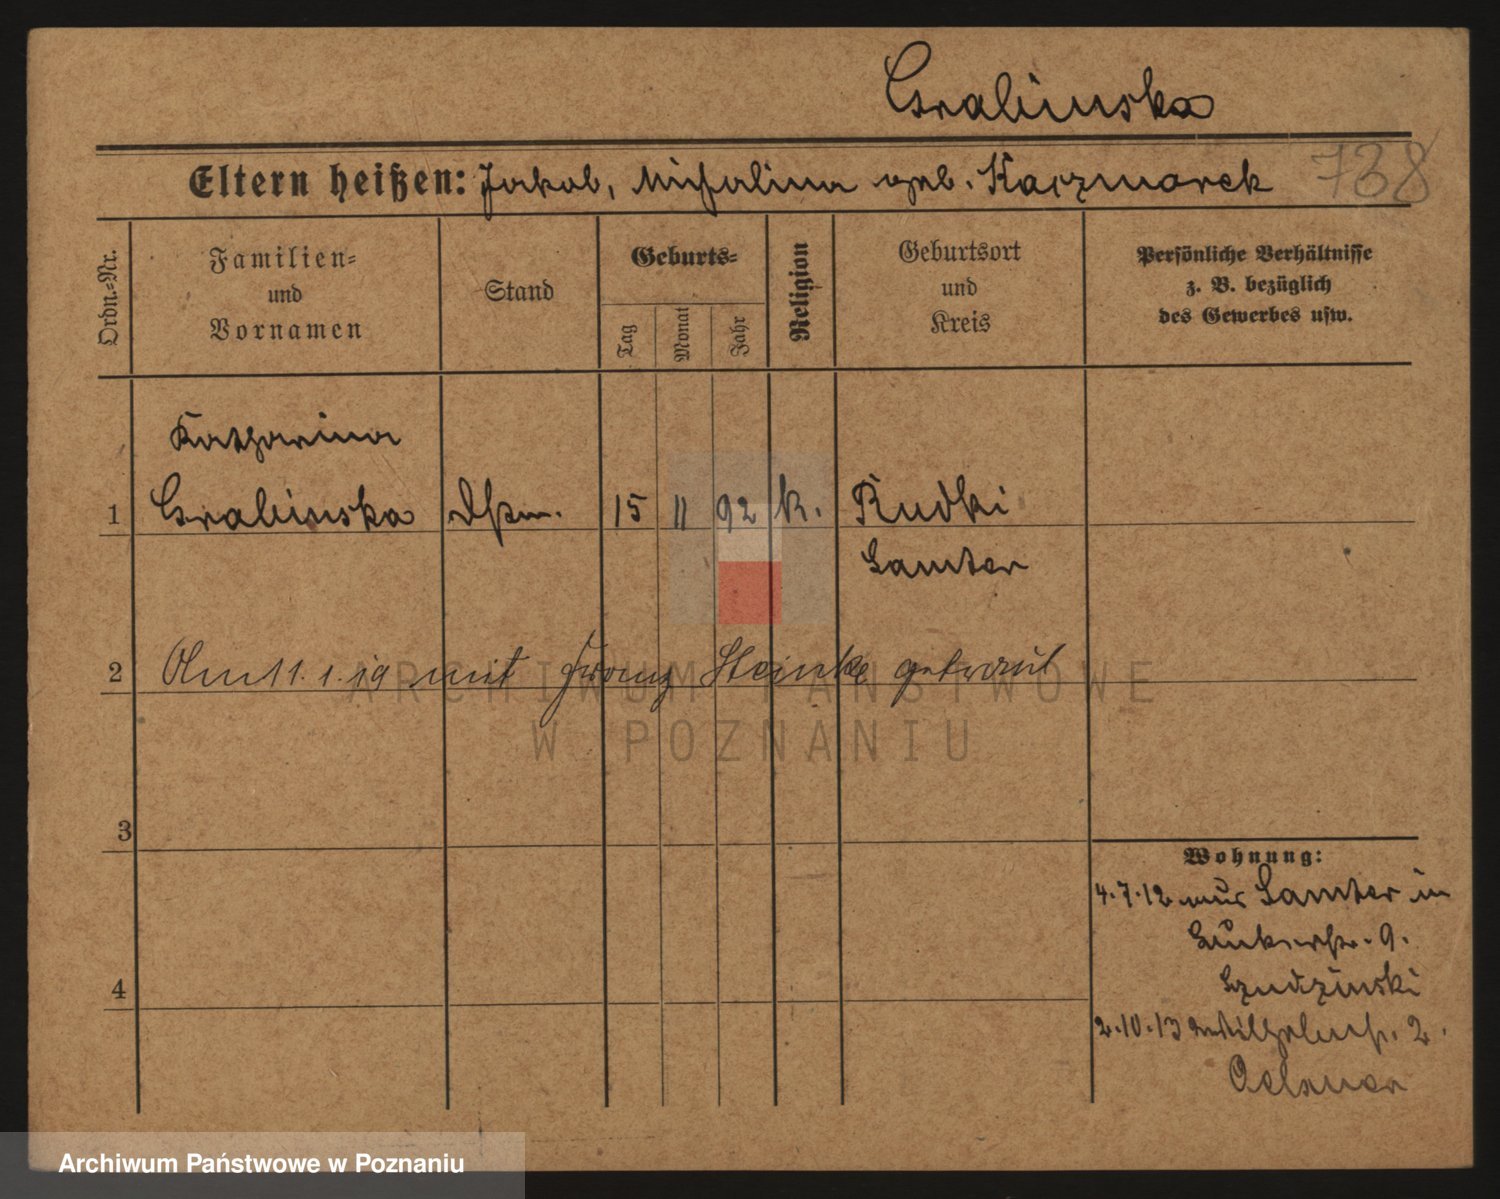 Grabinska
Eltern heißen: Jakob, Michalina geb. Kaczmarek 738
Ordn.-Nr.
Familien-
und
Vornamen
Stand
Geburts-
Tag
Monat
Jahr
Religion
Geburtsort
und
Kreis
Persönliche Verhältnisse
z. B. bezüglich
des Gewerbes usw.
Katharina
1 Grabinska 15 11 92 k. Rudki
Samter
2 Am 11.1.19 mit Franz Steinke getraut
3
4
Wohnung:
4.7.12 aus Samter in
9.
Szudzinski
2.10.13 Wilhelmstr. 2.
Oelsner
ARCHIWUM PAŃSTWOWE
W POZNANIU
Archiwum Państwowe w Poznaniu